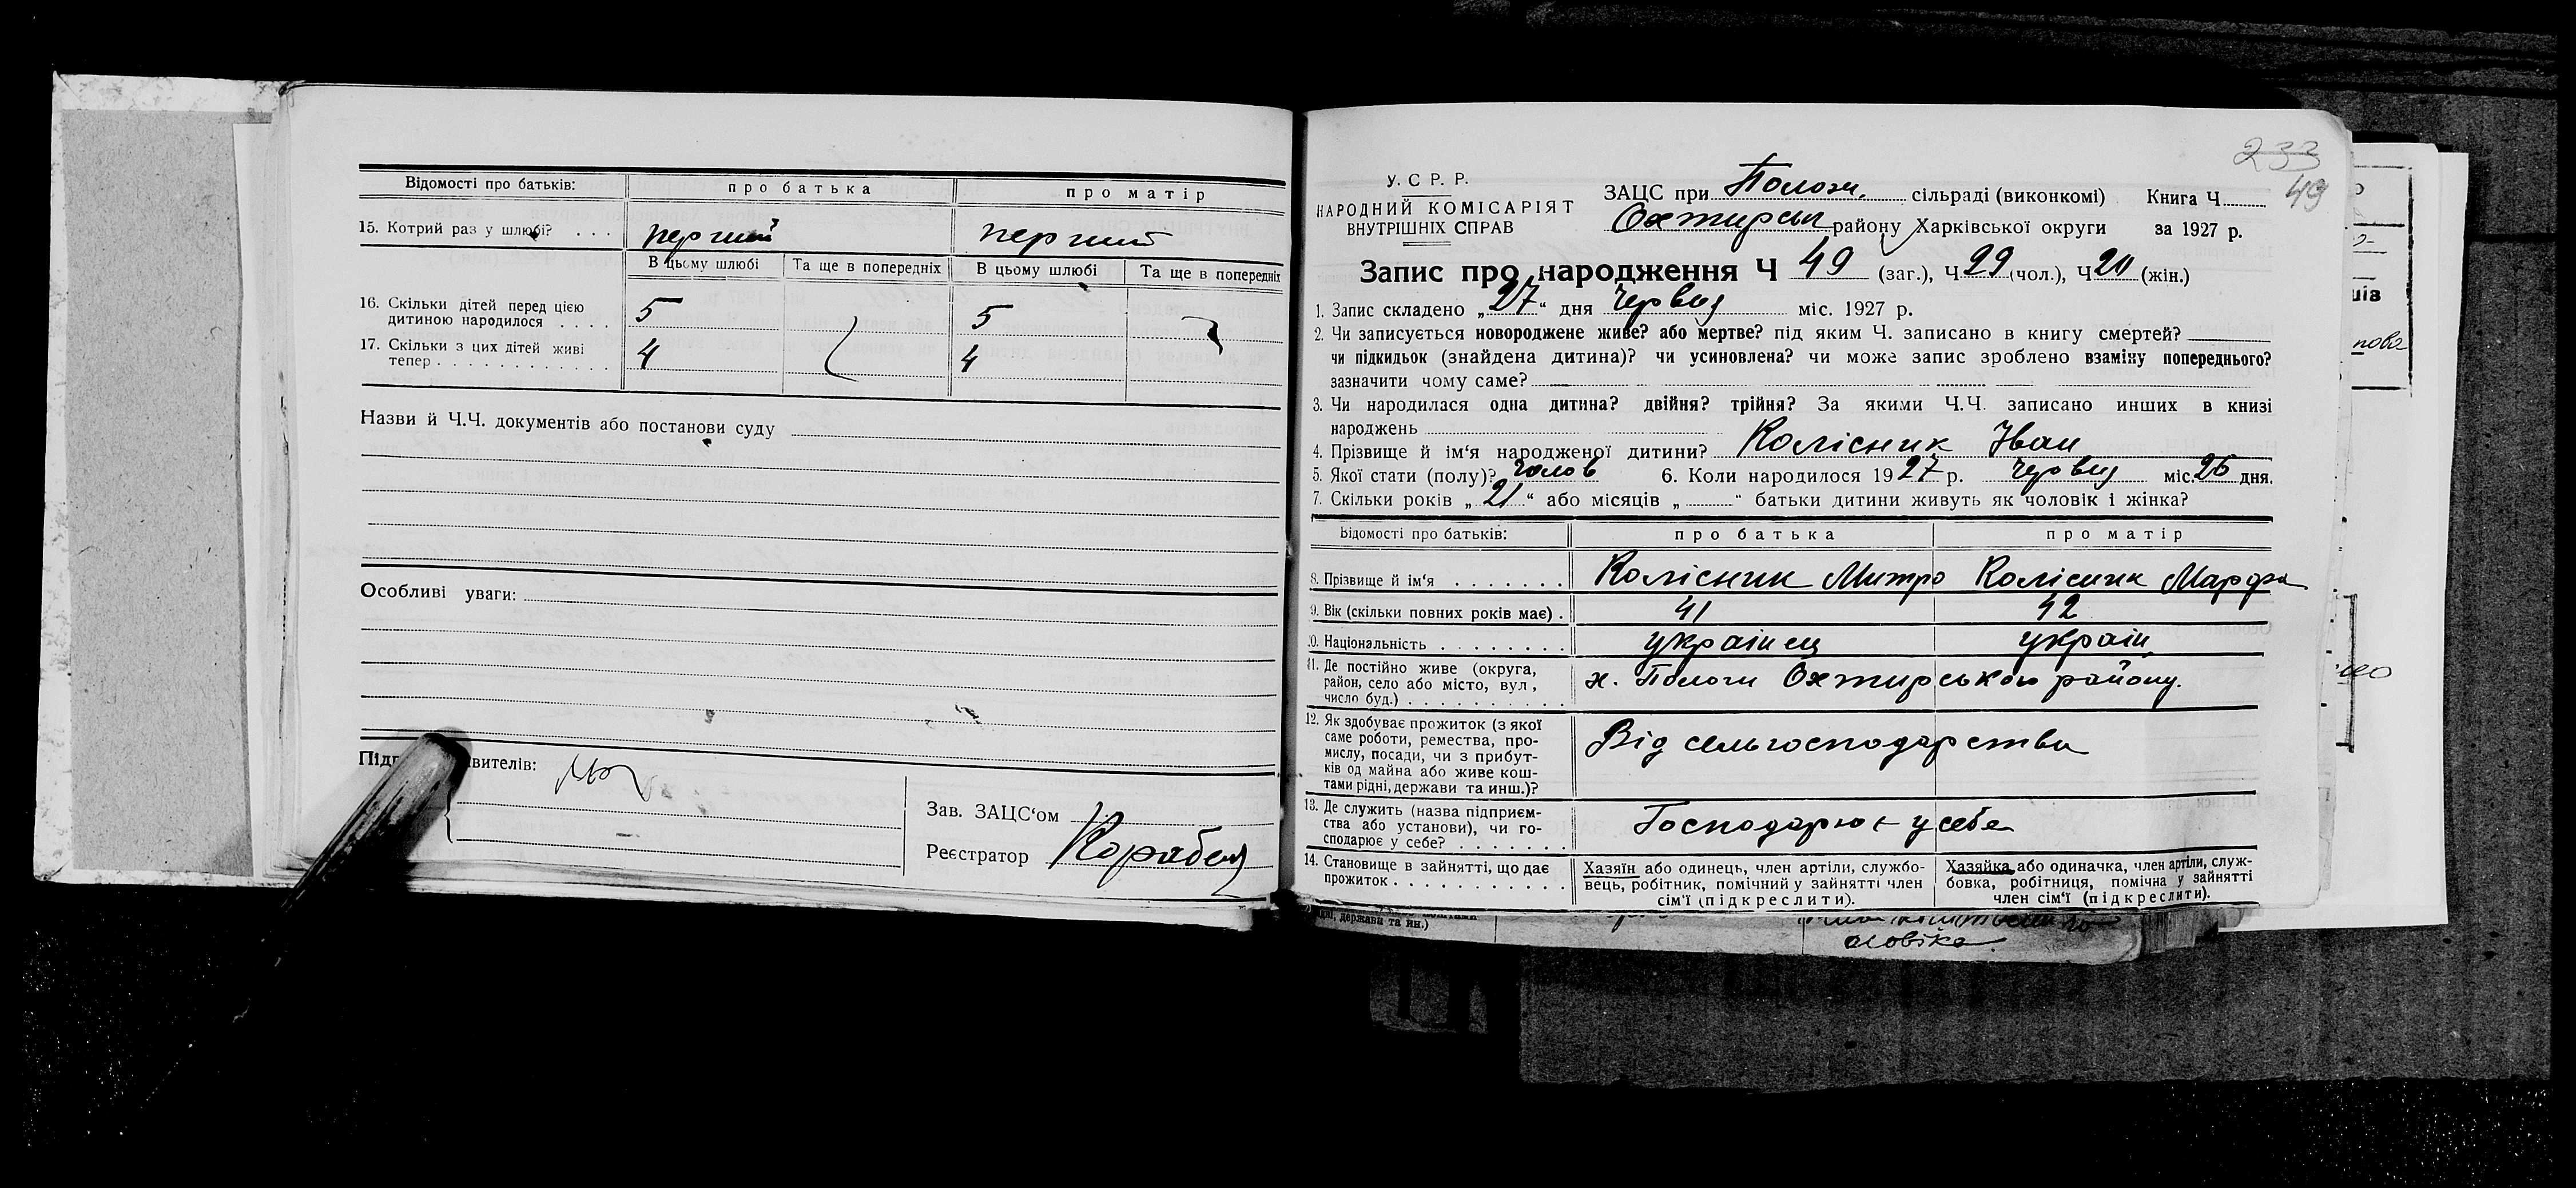 Відомості про батьків: про батька про матір
15. Котрий раз у шлюбі? . . . перший перший
В цьому шлюбі Та ще в попередніх В цьому шлюбі Та ще в попередніх
16. Скільки дітей перед цією
дитиною народилося . . . . 5 5
17. Скільки з цих дітей живі
тепер . . . . . . . . . . . . . 4 4
Назви й Ч.Ч. документів або постанови суду
Особливі уваги:
Підп вителів:
Зав. ЗАЦС‘ом
Реєстратор
233
49
У. С Р. Р.
НАРОДНИЙ КОМІСАРІЯТ
ВНУТРІШНІХ СПРАВ
ЗАЦС при Полози. сільраді (виконкомі) Книга Ч
Охтирськ району Харківської округи за 1927 р.
Запис про народження Ч 49 (заг.), Ч 29 (чол.), Ч 20 (жін.)
1. Запис складено „27“ дня червня міс. 1927 р.
2. Чи записується новороджене живе? або мертве? під яким Ч. записано в книгу смертей?
чи підкидьок (знайдена дитина)? чи усиновлена? чи може запис зроблено взаміну попереднього?
зазначити чому саме?
3. Чи народилася одна дитина? двійня? трійня? За якими Ч.Ч. записано инших в книзі
народжень
4. Прізвище й ім‘я народженої дитини? Колісник Іван
5. Якої стати (полу)? чолов 6. Коли народилося 1927 р. червня міс. 26 дня.
7. Скільки років „21“ або місяців „ “ батьки дитини живуть як чоловік і жінка?
Відомості про батьків: про батька про матір
8. Прізвище й ім‘я . . . . . . . Колісник Митро Колісник Марфа
9. Вік (скільки повних років має) . 41 42
0. Національність . . . . . . . . украінец украін
11. Де постійно живе (округа,
район, село або місто, вул,
число буд.) . . . . . . . . . . .
х. Пологи Охтирського району.
12. Як здобуває прожиток (з якої
саме роботи, ремества, про-
мислу, посади, чи з прибут-
ків од майна або живе кош-
тами рідні, держави та инш.)?
Від сельгосподарства
13. Де служить (назва підприєм-
ства або установи), чи го-
сподарює у себе? . . . . . . .
Господарює у себе
14. Становище в зайнятті, що дає
прожиток . . . . . . . . . . . .
Хазяїн або одинець, член артілі, службо-
вець, робітник, помічний у зайнятті член
сім‘ї (підкреслити).
Хазяйка або одиначка, член артіли, служ-
бовка, робітниця, помічна у зайнятті
член сім‘ї (підкреслити).
держави та ин.)